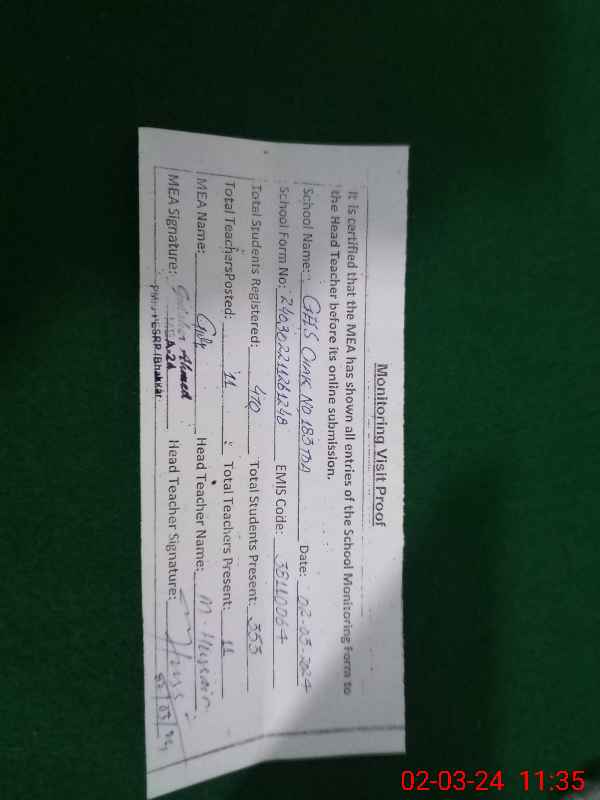 Monitoring Visit Proof
It is certified that the MEA has shown all entries of the School Monitoring Form to
the Head Teacher before its online submission.
School Name: GHS CHAK NO 183 TDA Date: 02-03-2024
School Form No: 240302211261248 EMIS Code: 38110064
Total Students Registered: 410 Total Students Present: 353
Total Teachers Posted: 11 Total Teachers Present: 11
MEA Name: Head Teacher Name: M. Hussain
MEA Signature: Ahmed Head Teacher Signature:
MEA-24
Bhakkar
02-03-24 11:35